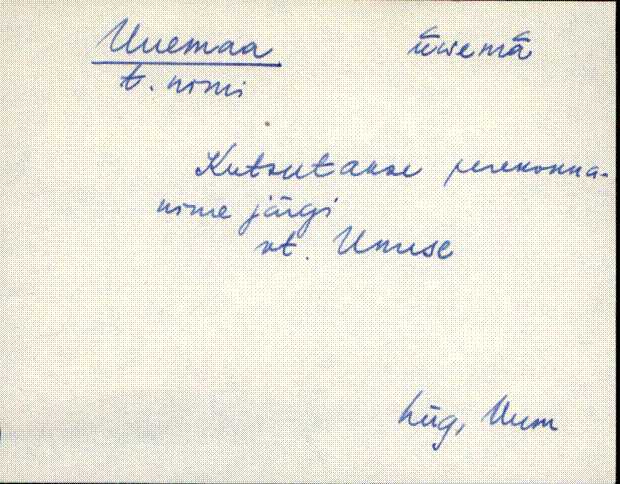 Uuemaa üwemā
t. nimi
Kutsutakse perekonna-
nime järgi
vt. Unuse
Lüg, Uum